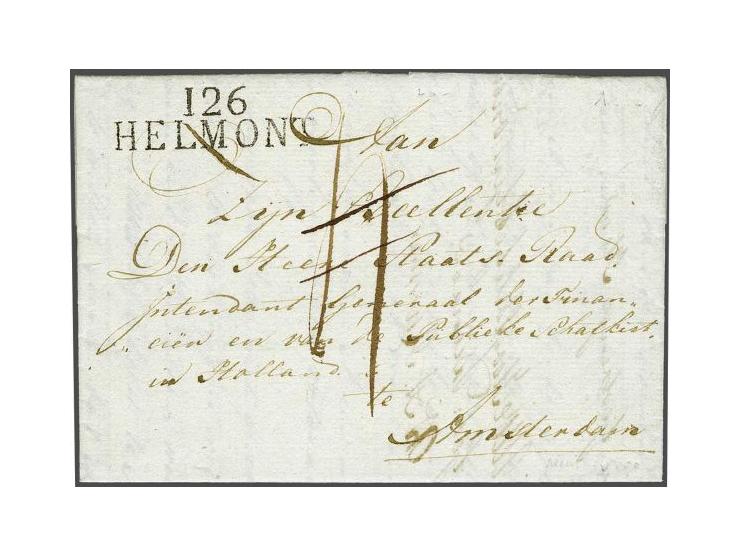 126
HELMONT
Aan
Zijn Excellentie
Den Heere Staats Raad
Intendant Generaal der Finan„
„ ciën en van de Publieke Schatkist.
in Holland
te
Amsterdam